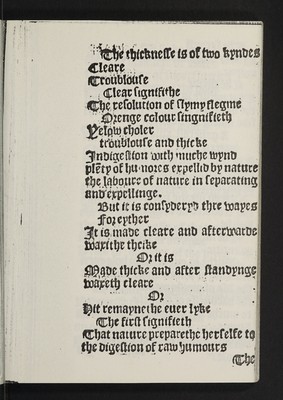 The thicknesse is of two kyndes
Cleare
Troublouse
Clear signifithe
The resolution of slymy flegme
Orenge colour singnifieth
Yelow choler
troublouse and thicke
Indigestion with muche wynd
plēty of humores expellid by nature
the labourc of nature in separating
and expellinge.
But it is consyderyd thre wayes
For eyther
It is made cleare and afterwarde
waxithe thicke
Or it is
Made thicke and after standynge
waxeth cleare
Or
Hit remaynethe euer lyke
The first signifieth
That nature preparethe herselfe to
the digestion of raw humours
The